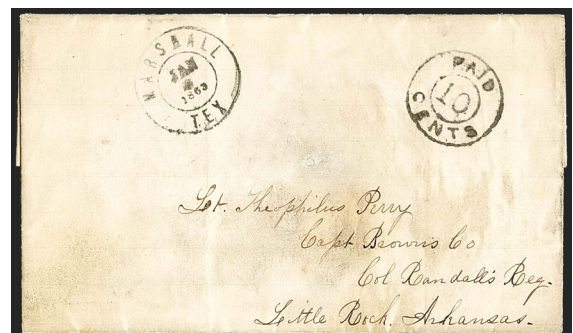 MARSHALL TEX
JAN
1863
PAID
10
CENTS
Lt. Theophilus Perry
Capt Browns Co
Col Randall's Reg.
Little Rock, Arkansas.